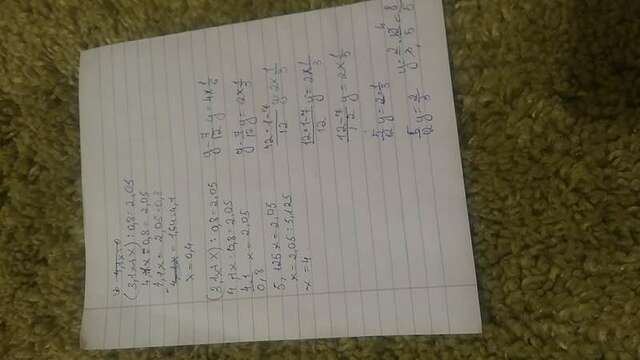 (3,1x+x):0,8=2,05
4,1x:0,8=2,05
4,1x=2,05·0,8
4,1x=1,64:4,1
x=0,4
(3,1x+x):0,8=2,05
4,1x:0,8=2,05
4,1/0,8 x=2,05
5,125x=2,05
x=2,05:5,125
x=4
y-7/12 y=4×1/6
y-7/12 y=2×1/3
12·1-7/12 y=2×1/3
12·1-7/12 y=2×1/3
12-7/12 y=2×1/3
5/12 y=2·1/3
5/12 y=2/3
y=2/3·12/5=8/5